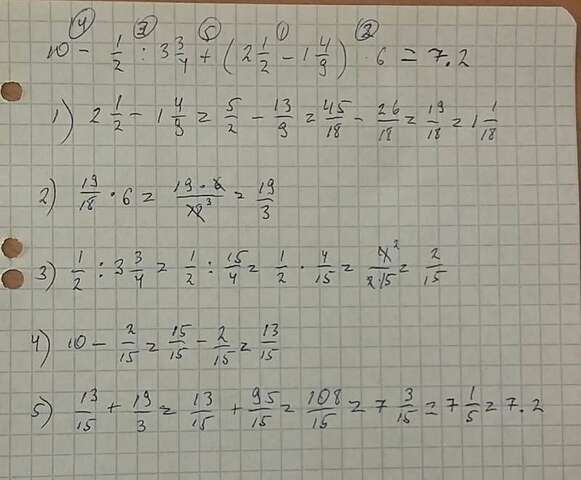 ④ ③ ⑤ ① ②
10 - 1/2 : 3 3/4 + (2 1/2 - 1 4/9) · 6 = 7.2
1) 2 1/2 - 1 4/9 = 5/2 - 13/9 = 45/18 - 26/18 = 19/18 = 1 1/18
2) 19/18 · 6 = 19 · 6/18 3 = 19/3
3) 1/2 : 3 3/4 = 1/2 : 15/4 = 1/2 · 4/15 = 4 2/2 · 15 = 2/15
4) 10 - 2/15 = 15/15 - 2/15 = 13/15
5) 13/15 + 19/3 = 13/15 + 95/15 = 108/15 = 7 3/15 = 7 1/5 = 7.2